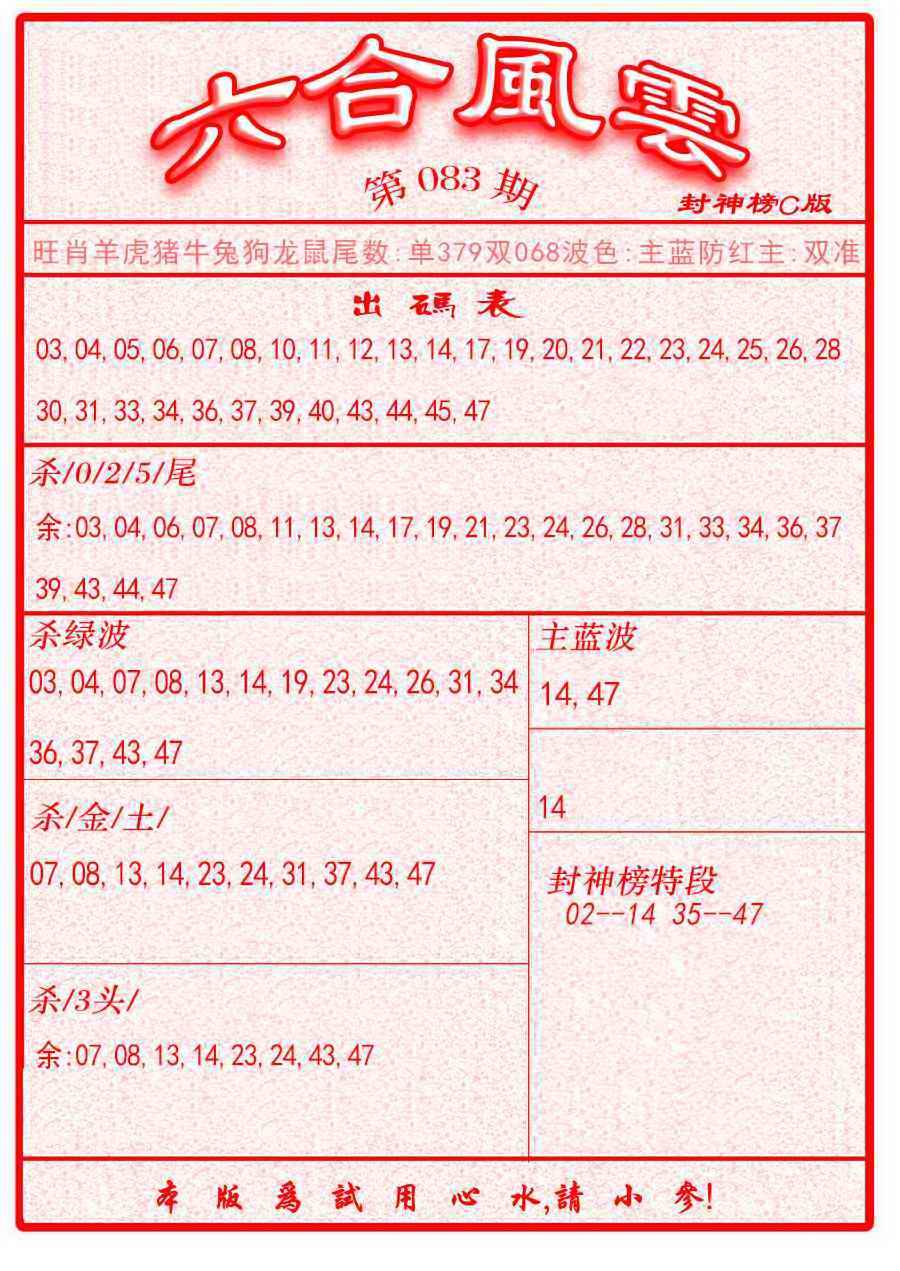 六合風雲
第 083 期
封神榜C版
旺肖羊虎猪牛兔狗龙鼠尾数:单379双068波色:主蓝防红主:双准
出碼表
03,04,05,06,07,08,10,11,12,13,14,17,19,20,21,22,23,24,25,26,28
30,31,33,34,36,37,39,40,43,44,45,47
杀/0/2/5/尾
余:03,04,06,07,08,11,13,14,17,19,21,23,24,26,28,31,33,34,36,37
39,43,44,47
杀绿波
03,04,07,08,13,14,19,23,24,26,31,34
36,37,43,47
主蓝波
14,47
14
杀/金/土/
07,08,13,14,23,24,31,37,43,47
封神榜特段
02--14 35--47
杀/3头/
余:07,08,13,14,23,24,43,47
本版爲試用心水,請小參!